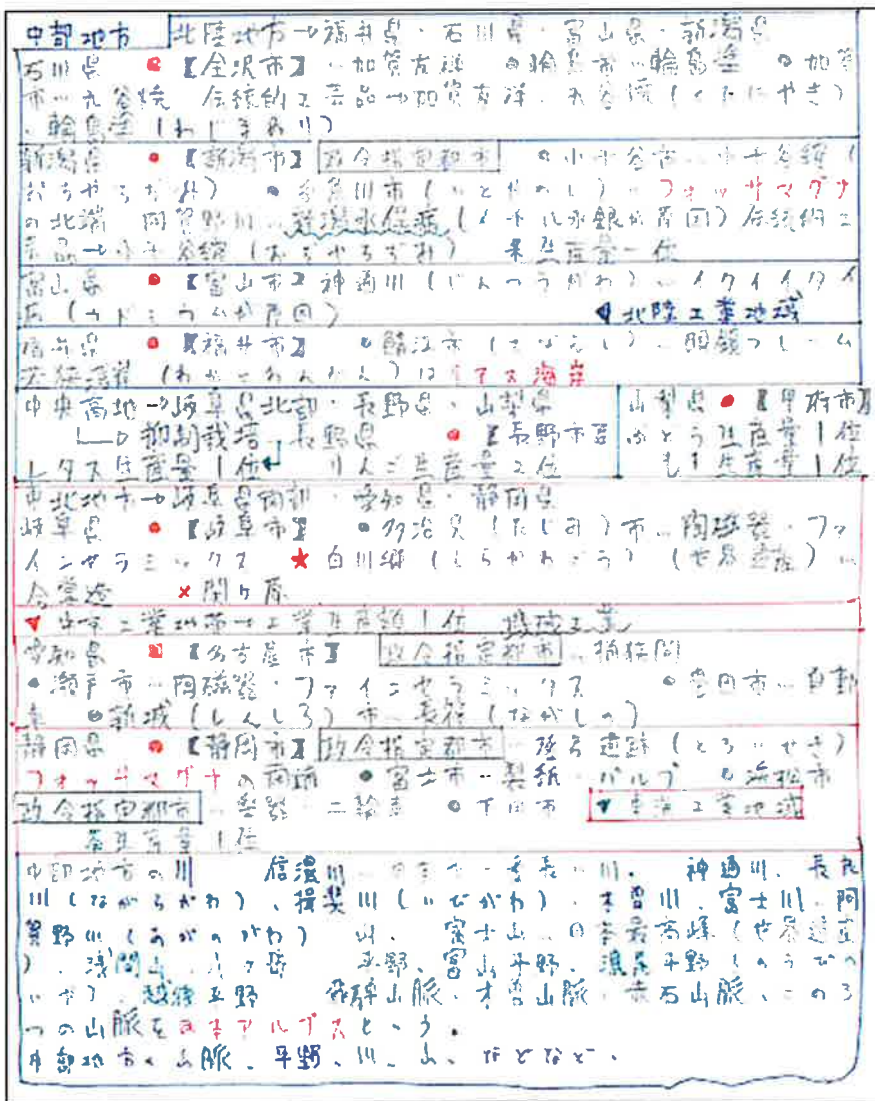 中部地方 北陸地方→福井県・石川県・富山県・新潟県
石川県 ■【金沢市】…加賀友禅 ●輪島市…輪島塗 ●加賀
市…九谷焼 伝統的工芸品→加賀友禅、九谷焼(くたにやき)
、輪島塗(わじまぬり)
新潟県 ●【新潟市】政令指定都市 ●小千谷市…小千谷縮(
おぢやちぢみ) ●糸魚川市(いといがわし)…フォッサマグナ
の北端 阿賀野川…新潟水俣病(メチル水銀が原因)伝統的工
芸品→小千谷縮(おぢやちぢみ) 米生産量一位
富山県 ●【富山市】神通川(じんつうがわ)…イタイイタイ
病(カドミウムが原因) ▼北陸工業地域
福井県 ●【福井市】 ●鯖江市(さばえし)…眼鏡フレーム
若狭湾岸(わかさわんがん)はリアス海岸
中央高地→岐阜県北部・長野県・山梨県
抑制栽培 長野県 ●【長野市】
レタス生産量1位 りんご生産量2位
山梨県 ●【甲府市】
ぶどう生産量1位
もも生産量1位
東北地方→岐阜県南部・愛知県・静岡県
岐阜県 ●【岐阜市】 ●多治見(たじみ)市…陶磁器・ファ
インセラミックス ★白川郷(しらかわごう)(世界遺産)…
合掌造 ×関ヶ原
▼中京工業地帯→工業生産額1位 機械工業
愛知県 ■【名古屋市】政令指定都市…桶狭間
●瀬戸市…陶磁器・ファインセラミックス ●豊田市…自動
車 ●新城(しんしろ)市…長篠(ながしの)
静岡県 ●【静岡市】政令指定都市…登呂遺跡(とろいせき)
フォッサマグナの南端 ●富士市…製紙・パルプ ●浜松市
政令指定都市…楽器・二輪車 ●下田市 ▼東海工業地域
茶生産量1位
中部地方の川 信濃川…日本で一番長い川。 神通川、長良
川(ながらがわ)、揖斐川(いびがわ)、木曽川、富士川、阿
賀野川(あがのがわ) 山、富士山…日本最高峰(世界遺産
)、浅間山、八ヶ岳 平野、富山平野、濃尾平野(のうびへ
いや)、越後平野 飛騨山脈・木曽山脈・赤石山脈、この3
つの山脈を日本アルプスという。
中部地方の山脈、平野、川、山、などなど、